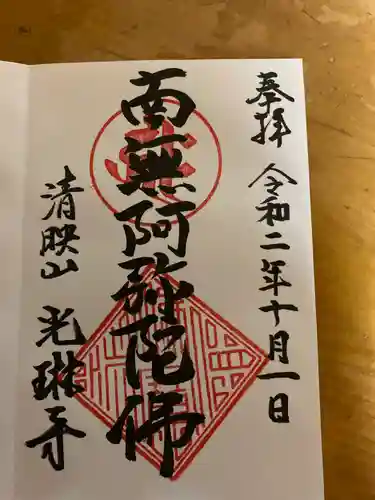 奉拝
令和二年十月一日
南無阿弥陀佛
清映山
光琳寺